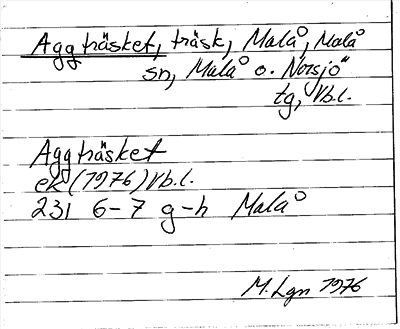 Aggträsket, träsk, Malå, Malå
sn, Malå o. Norsjö
tg, Vb.l.
Aggträsket
ek (1976) Vb.l.
23I 6-7 g-h Malå
M. Lgn 1976